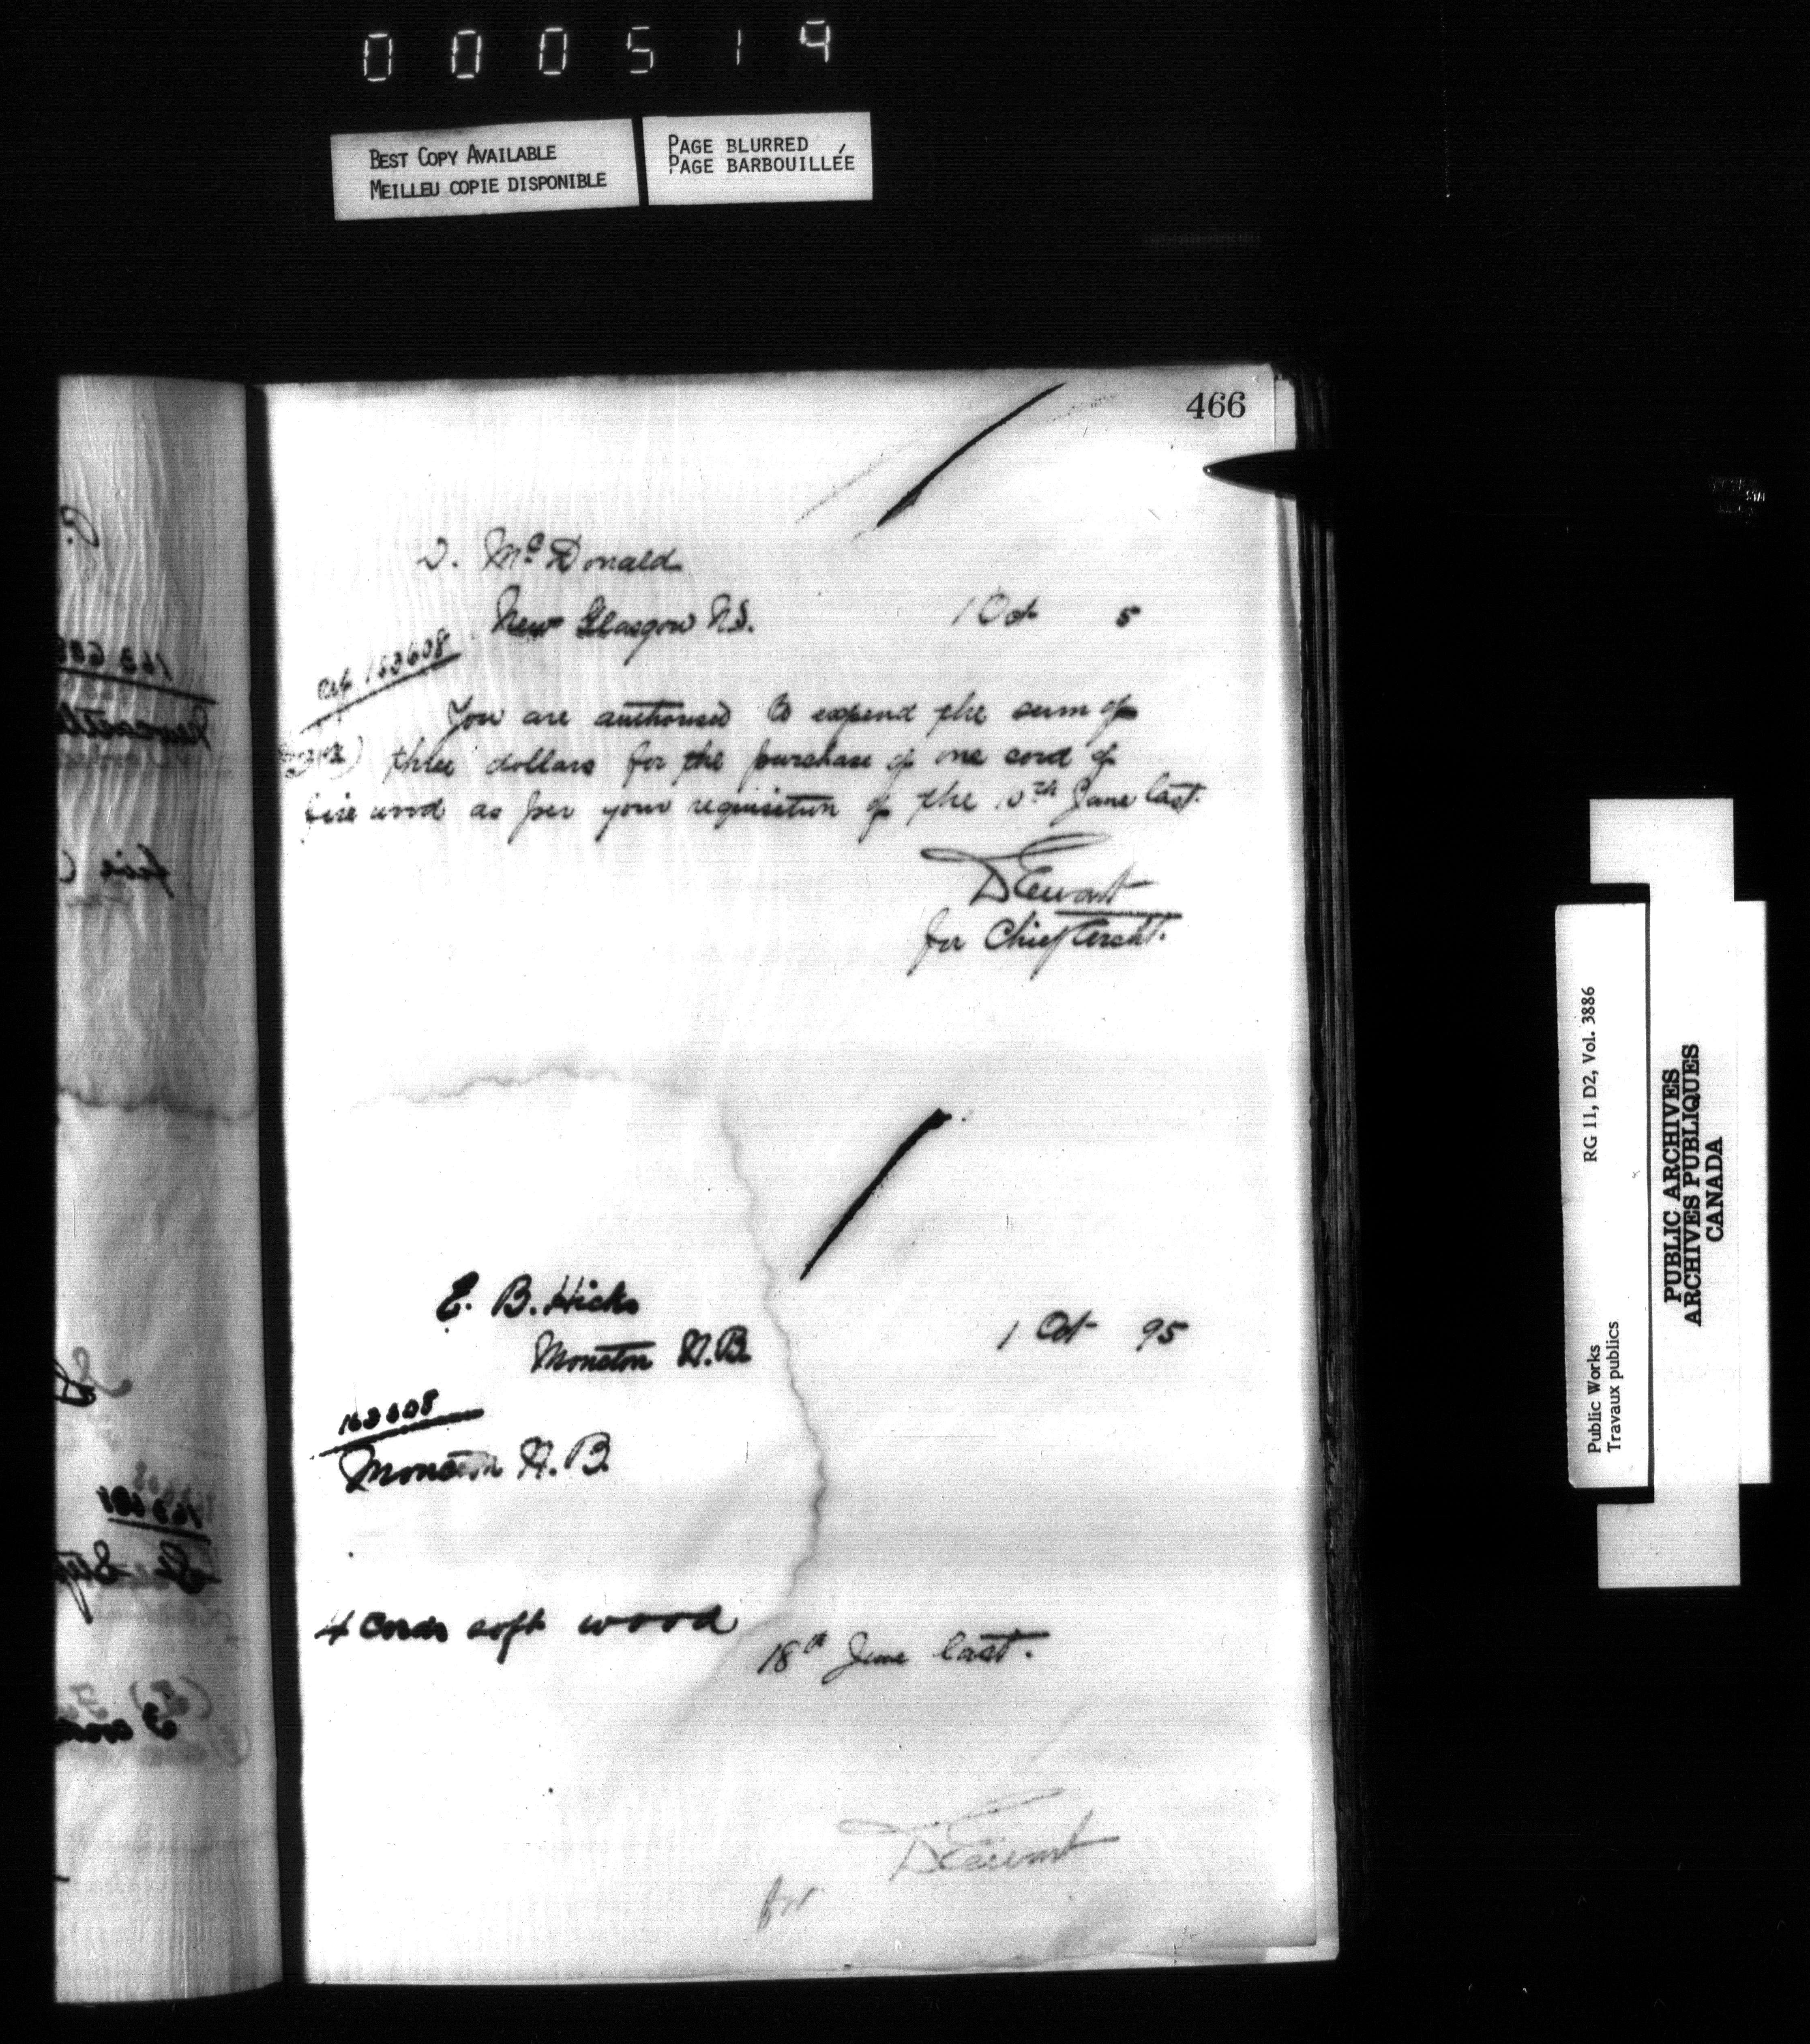 000519
BEST COPY AVAILABLE
MEILLEU COPIE DISPONIBLE
PAGE BLURRED
PAGE BARBOUILLÉE
466
D. Mc Donald
New Glasgow N.S.
1 Oct 5
163608
You are authorised to expend the sum of
three dollars for the purchase of one cord of
fire wood as per your requisition of the June last.
D Ewart
for Chief Archt.
E. B. Hicks
Moncton N.B.
1 Oct 95
163608
Moncton N.B.
4 Cords soft wood
18th June last.
D Ewart
for
Public Works
Travaux publics
RG 11, D2, Vol. 3886
PUBLIC ARCHIVES
ARCHIVES PUBLIQUES
CANADA